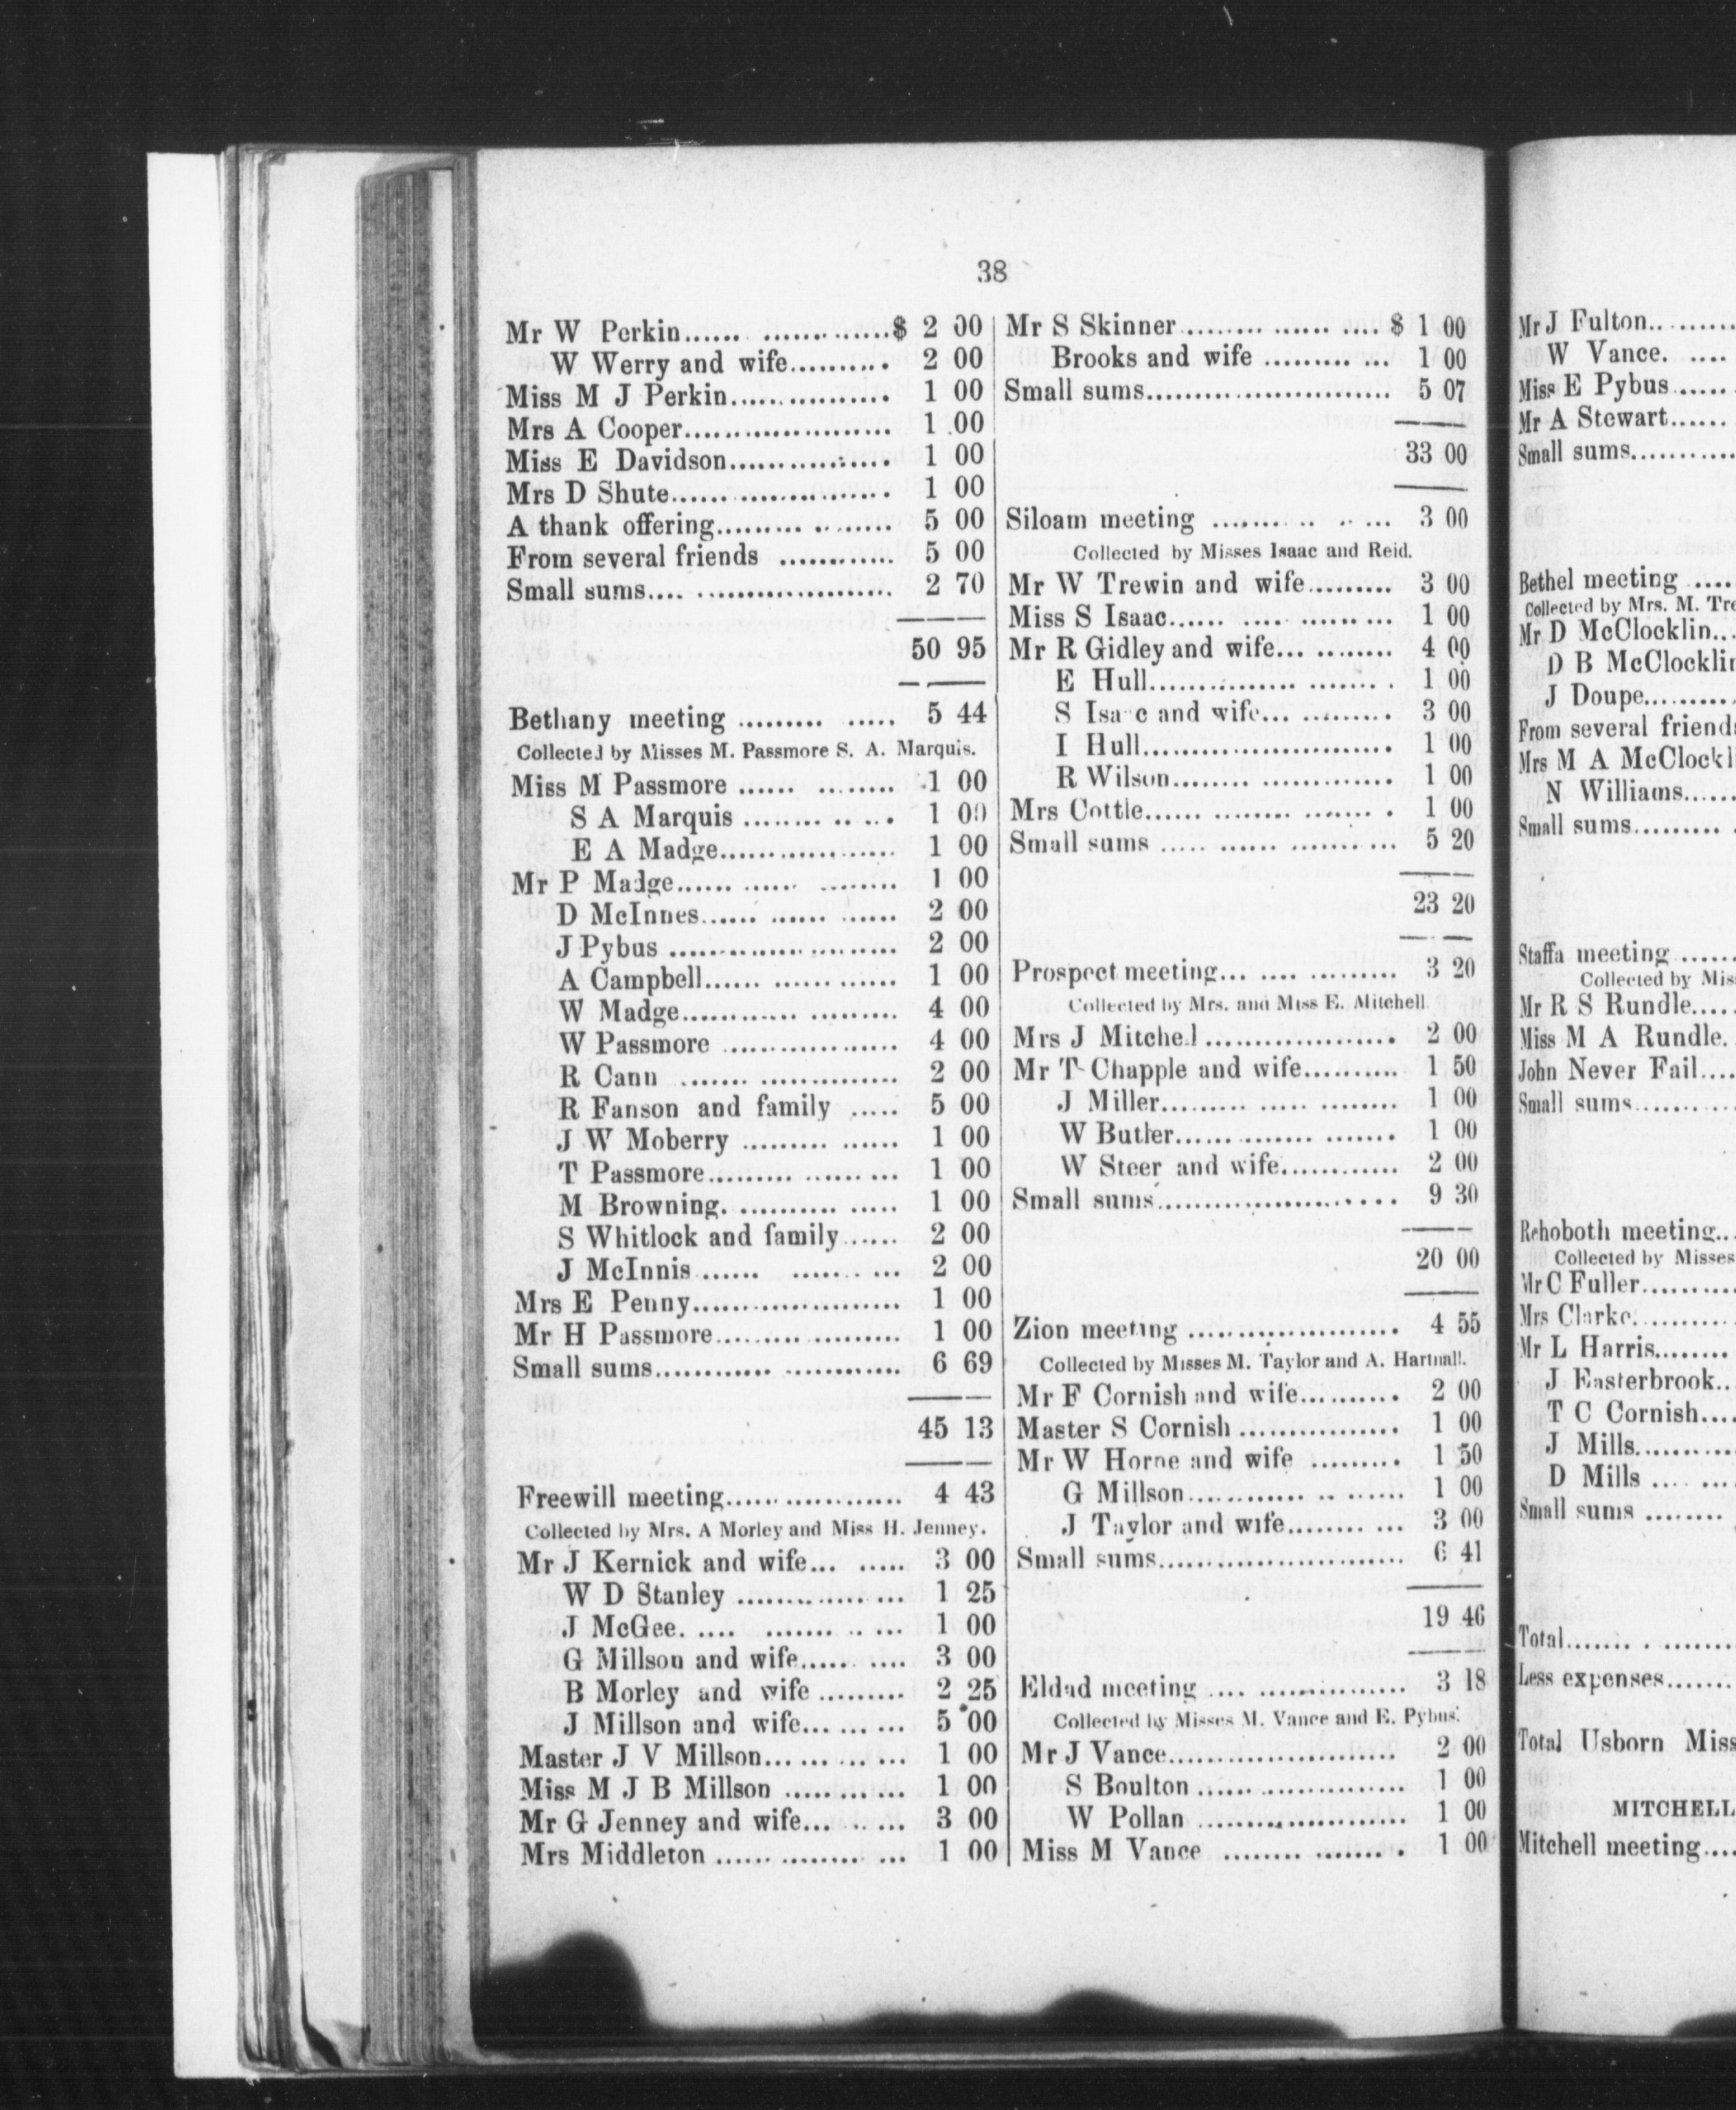 38
Mr W Perkin...... ..............$ 2 00
W Werry and wife.......... 2 00
Miss M J Perkin................ 1 00
Mrs A Cooper..................... 1 00
Miss E Davidson................ 1 00
Mrs D Shute...................... 1 00
A thank offering......... .. ...... 5 00
From several friends ............ 5 00
Small sums.... .................... 2 70
50 95
Bethany meeting ......... ..... 5 44
Collected by Misses M. Passmore S. A. Marquis.
Miss M Passmore ...... ........ 1 00
S A Marquis ........ .. ... 1 00
E A Madge.................. 1 00
Mr P Madge...... ...... ........ 1 00
D McInnes...... ...... ...... 2 00
J Pybus ....................... 2 00
A Campbell...... ............ 1 00
W Madge............ ......... 4 00
W Passmore .................. 4 00
R Cann ....... .............. 2 00
R Fanson and family ..... 5 00
J W Moberry ......... ...... 1 00
T Passmore......... ...... ... 1 00
M Browning. .......... ..... 1 00
S Whitlock and family...... 2 00
J McInnis ...... ....... ... 2 00
Mrs E Penny..................... 1 00
Mr H Passmore......... ......... 1 00
Small sums............ ............ 6 69
45 13
Freewill meeting.................. 4 43
Collected by Mrs. A Morley and Miss H. Jenney.
Mr J Kernick and wife... ..... 3 00
W D Stanley .............. ... 1 25
J McGee. .... ........ .. ... 1 00
G Millson and wife...... .... 3 00
B Morley and wife ......... 2 25
J Millson and wife... ... ... 5 00
Master J V Millson... ... .. ... 1 00
Miss M J B Millson ............ 1 00
Mr G Jenney and wife... .. ... 3 00
Mrs Middleton ...... ........ ... 1 00
Mr S Skinner........ ...... .... $ 1 00
Brooks and wife ......... ... 1 00
Small sums......................... 5 07
33 00
Siloam meeting ........ .. .. ... 3 00
Collected by Misses Isaac and Reid.
Mr W Trewin and wife......... 3 00
Miss S Isaac...... .... ...... ... 1 00
Mr R Gidley and wife... ......... 4 00
E Hull............... ....... . 1 00
S Isaac and wife... ......... 3 00
I Hull......................... 1 00
R Wilson........ ............. 1 00
Mrs Cottle...... ........ ....... . 1 00
Small sums ..... ...... .......... ... 5 20
23 20
Prospect meeting... .... ......... 3 20
Collected by Mrs. and Miss E. Mitchell
Mrs J Mitchell ................... 2 00
Mr T Chapple and wife.......... 1 50
J Miller......... ..... ........ 1 00
W Butler...... ....... ....... 1 00
W Steer and wife............ 2 00
Small sums........................ 9 30
20 00
Zion meeting ..................... 4 55
Collected by Misses M. Taylor and A. Hartnall.
Mr F Cornish and wife.......... 2 00
Master S Cornish ................ 1 00
Mr W Horne and wife ......... 1 50
G Millson............ .. ...... 1 00
J Taylor and wife........ ... 3 00
Small sums......................... 6 41
19 46
Eldad meeting .... ............... 3 18
Collected by Misses M. Vance and E. Pybus.
Mr J Vance....................... 2 00
S Boulton ..... ............... 1 00
W Pollan ..................... 1 00
Miss M Vance ........ ....... . 1 00
Mr J Fulton.. .........
W Vance. ....
Miss E Pybus ......
Mr A Stewart......
Small sums...........
Bethel meeting ....
Collected by Mrs. M.
Mr D McClocklin...
D B
J Doupe.........
From several
Mrs M A
N Williams......
Small sums......... .
Staffa meeting ......
Collected by
Mr R S Rundle.....
Miss M A Rundle.
John Never Fail....
Small sums..........
Rehoboth meeting...
Collected by Misses
Mr C Fuller..........
Mrs Clarke..........
Mr L Harris........
J Easterbrook..
T C Cornish....
J Mills..........
D Mills .... ...
Small sums ........
Total....... . .......
Less expenses.......
Total Usborn
MITCHELL
Mitchell meeting....